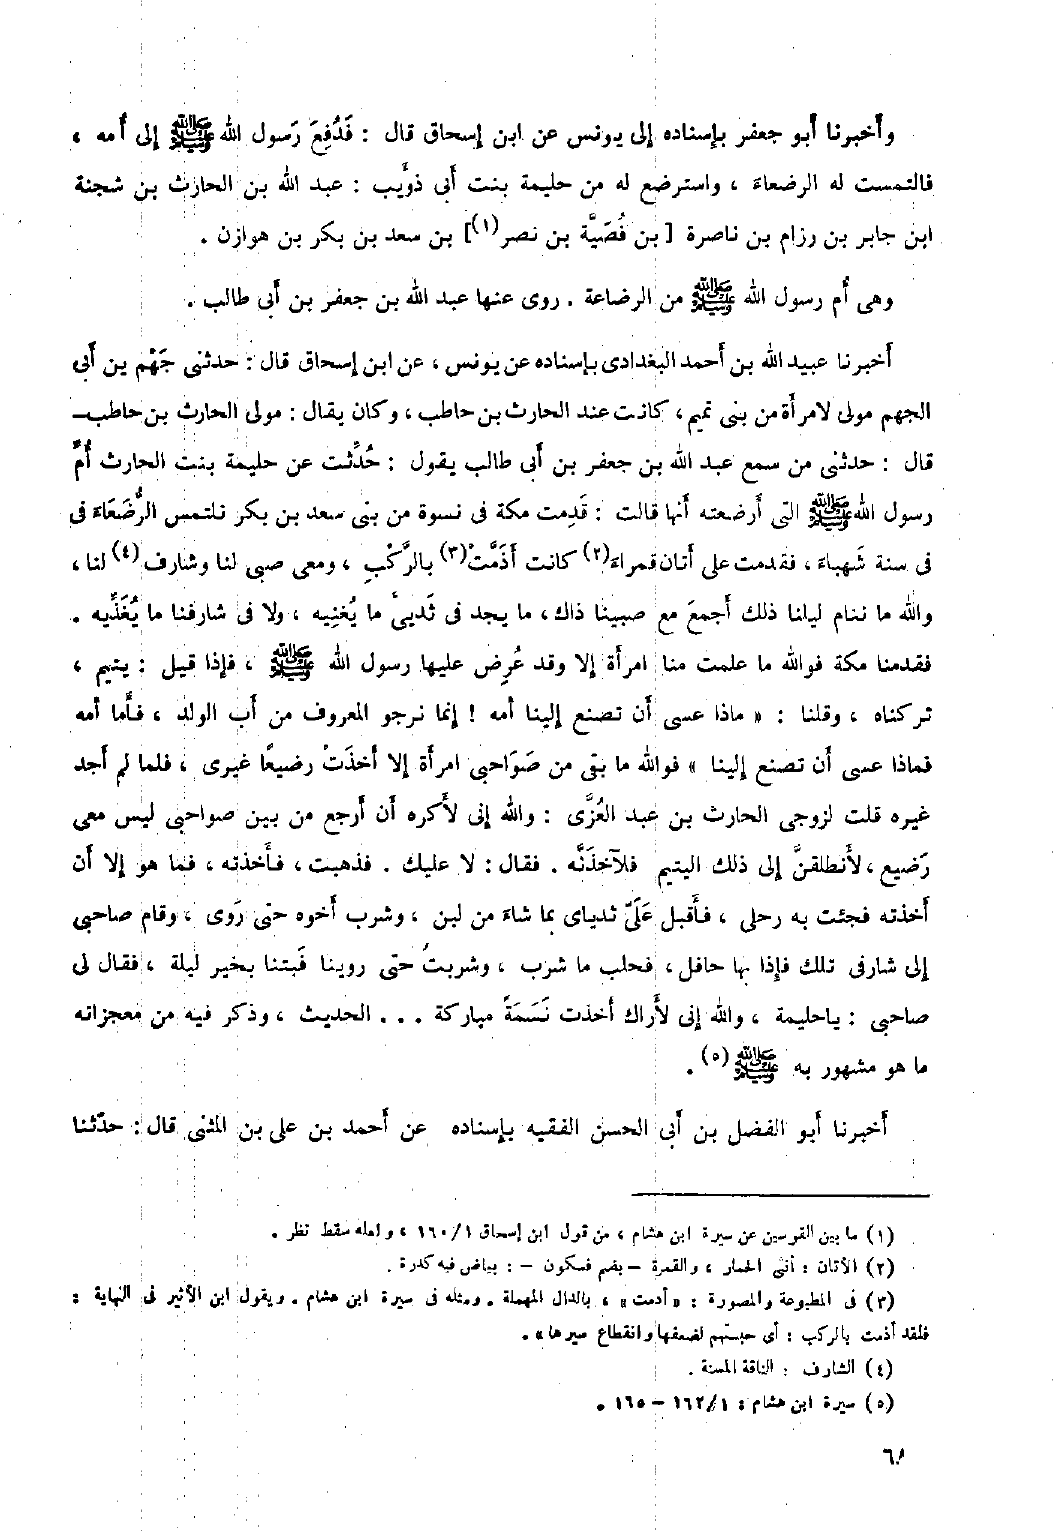 وأخبرنا أبو جعفر بإسناده إلى يونس عن ابن إسحاق قال : فَدُفِعَ رَسول الله ﷺ إلى أُمه ،
فالتمست له الرضعاءَ ، واسترضع له من حليمة بنت أبى ذؤَيب : عبد الله بن الحارث بن شجنة
ابن جابر بن رزام بن ناصرة [ بن فُصَيَّة بن نصر(١)] بن سعد بن بكر بن هوازن .
وهى أُم رسول الله ﷺ من الرضاعة . روى عنها عبد الله بن جعفر بن أبى طالب .
أخبرنا عبيد الله بن أحمد البغدادى بإسناده عن يونس ، عن ابن إسحاق قال : حدثنى جَهْم بن أبى
الجهم مولى لامرأة من بنى تميم ، كانت عند الحارث بن حاطب ، وكان يقال : مولى الحارث بن حاطب ــ
قال : حدثنى من سمع عبد الله بن جعفر بن أبى طالب يقول : حُدِّثت عن حليمة بنت الحارث أُمِّ
رسول الله ﷺ التى أرضعته أنها قالت : قَدِمت مكة فى نسوة من بنى سعد بن بكر نلتمس الرُّضَعَاءَ فى
فى سنة شَهباءَ ، فقدمت على أتان قمراءَ(٢) كانت أذَمَّتْ(٣) بالرَّكْبِ ، ومعى صبى لنا وشارف(٤) لنا ،
والله ما ننام ليلنا ذلك أجمعَ مع صبينا ذاك ، ما يجد فى ثَديىَّ ما يُغنِيه ، ولا فى شارفنا ما يُغَذِّيه .
فقدمنا مكة فوالله ما علمت منا امرأة إلا وقد عُرِض عليها رسول الله ﷺ ، فإذا قيل : يتيم ،
تركناه ، وقلنا : « ماذا عسى أن تصنع إلينا أمه ! إنما نرجو المعروف من أب الولد ، فأَما أمه
فماذا عسى أن تصنع إلينا » فوالله ما بقى من صَوَاحبى امرأة إلا أخذَتْ رضيعًا غيرى ، فلما لم أجد
غيره قلت لزوجى الحارث بن عبد العُزَّى : والله إنى لأكره أن أرجع من بين صواحبى ليس معى
رَضيع ، لأَنطلقنَّ إلى ذلك اليتيم فلآخذَنَّه . فقال : لا عليك . فذهبت ، فأَخذته ، فما هو إلا أن
أخذته فجئت به رحلى ، فأَقبل عَلَىّ ثدياى بما شاءَ من لبن ، وشرب أخوه حتى رَوى ، وقام صاحبى
إلى شارفى تلك فإذا بها حافل ، فحلب ما شرب ، وشربتُ حتى روينا فَبتنا بخير ليلة ، فقال لى
صاحبى : ياحليمة ، والله إنى لأَراك أخذت نَسَمَةً مباركة . . . الحديث ، وذكر فيه من معجزاته
ما هو مشهور به ﷺ (٥) .
أخبرنا أبو الفضل بن أبى الحسن الفقيه بإسناده عن أحمد بن على بن المثنى قال : حدّثنا
(١) ما بين القوسين عن سيرة ابن هشام ، من قول ابن إسحاق ١/١٦٠ ، ولعله سقط نظر .
(٢) الأتان : أنثى الحمار ، والقمرة – بضم فسكون – : بياض فيه كدرة .
(٣) فى المطبوعة والمصورة : « أدمت » ، بالدال المهملة . ومثله فى سيرة ابن هشام . ويقول ابن الأثير فى النهاية :
فلقد أذمت بالركب : أى حبستهم لضعفها وانقطاع سيرها » .
(٤) الشارف : الناقة المسنة .
(٥) سيرة ابن هشام : ١/١٦٢ – ١٦٥ .